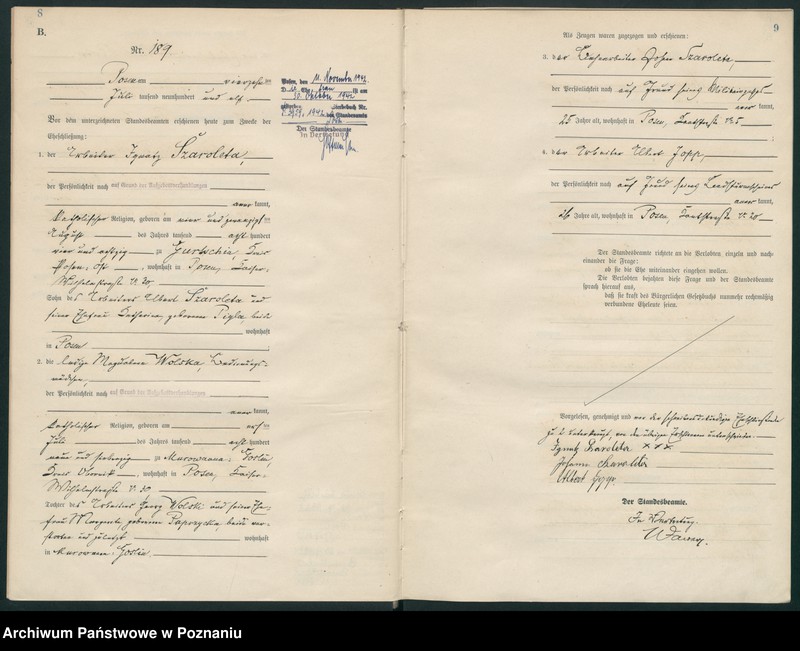 8
B.
Nr. 189
Posen am vierzehn ten
Juli tausend neunhundert und elf.
Posen, den 11. November 1942
Frau ist am
30. Oktober 1942
verstorben
Sterbebuch Nr.
des Standesamts
Der Standesbeamte
In Vertretung
Vor dem unterzeichneten Standesbeamten erschienen heute zum Zwecke der
Eheschließung:
1. der Arbeiter Ignatz Szaroleta,
der Persönlichkeit nach auf Grund der Aufgebotsverhandlungen
aner kannt,
katholischer Religion, geboren am vier und zwanzigsten
August des Jahres tausend acht hundert
vier und achtzig zu Gurtschin, Kreis
Posen-Ost, wohnhaft in Posen, Kaiser-
Wilhelmstraße Nr. 20,
Sohn des Arbeiters Albert Szaroleta und
seiner Ehefrau Katharina, geborenen Pigla, beide
wohnhaft
in Posen
2. die ledige Magdalena Wolska, Bedienungs-
mädchen,
der Persönlichkeit nach auf Grund der Aufgebotsverhandlungen
aner kannt,
katholischer Religion, geboren am elf ten
Juli des Jahres tausend acht hundert
neun und siebenzig zu Murowanna-Goslin,
Kreis Obornik, wohnhaft in Posen, Kaiser-
Wilhelmstraße Nr. 20
Tochter des Arbeiters Georg Wolski und seiner Ehe-
frau Margareta, geborenen Paprzycka, beide ver-
storben und zuletzt wohnhaft
in Murowana-Goslin.
9
Als Zeugen waren zugezogen und erschienen:
3. der Johann Szaroleta,
der Persönlichkeit nach auf Grund seines Militärpasses
aner kannt,
25 Jahre alt, wohnhaft in Posen, Nr. 5
4. der Arbeiter Albert Jopp,
der Persönlichkeit nach auf Grund seines Landsturmscheins
aner kannt,
Jahre alt, wohnhaft in Posen, Nr. 20
Der Standesbeamte richtete an die Verlobten einzeln und nach-
einander die Frage:
ob sie die Ehe miteinander eingehen wollen.
Die Verlobten bejahten diese Frage und der Standesbeamte
sprach hierauf aus,
daß sie kraft des Bürgerlichen Gesetzbuchs nunmehr rechtmäßig
verbundene Eheleute seien.
Vorgelesen, genehmigt und von der schreibunkundigen Eheschließenden
von den übrigen Erschienenen unterschrieben.
Ignatz Szaroleta x x x
Johann Szaroleta
Albert Jopp
Der Standesbeamte.
In Vertretung.
Archiwum Państwowe w Poznaniu